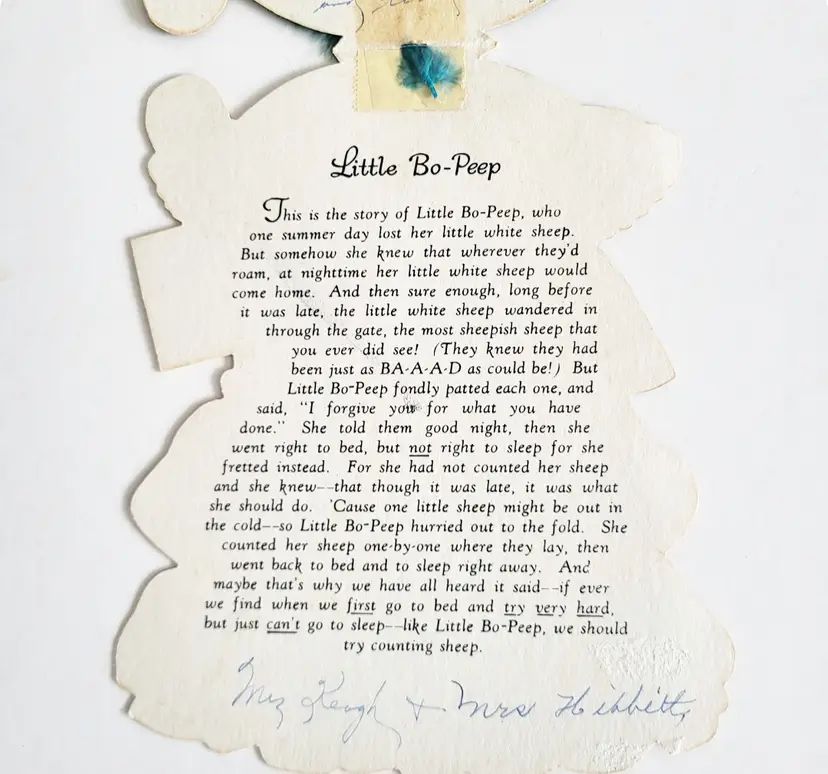 Little Bo-Peep
This is the story of Little Bo-Peep, who
one summer day lost her little white sheep.
But somehow she knew that wherever they'd
roam, at nighttime her little white sheep would
come home. And then sure enough, long before
it was late, the little white sheep wandered in
through the gate, the most sheepish sheep that
you ever did see! (They knew they had
been just as BA-A-A-D as could be!) But
Little Bo-Peep fondly patted each one, and
said, "I forgive you for what you have
done." She told them good night, then she
went right to bed, but not right to sleep for she
fretted instead. For she had not counted her sheep
and she knew--that though it was late, it was what
she should do. 'Cause one little sheep might be out in
the cold--so Little Bo-Peep hurried out to the fold. She
counted her sheep one-by-one where they lay, then
went back to bed and to sleep right away. And
maybe that's why we have all heard it said--if ever
we find when we first go to bed and try very hard,
but just can't go to sleep--like Little Bo-Peep, we should
try counting sheep.
Mrs Keogh + Mrs Hibbitts